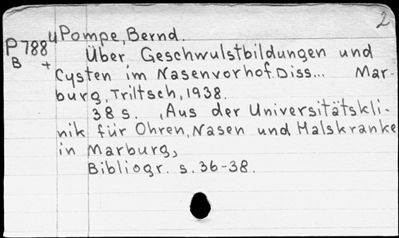 2
4 Pompe, Bernd.
P788
B + Über Geschwulstbildungen und
Cysten im Nasenvorhof. Diss... Mar-
burg, Triltsch, 1938.
38 s. ,Aus der Universitätskli-
nik für Ohren, Nasen und Halskranke
in Marburg,
Bibliogr. s. 36-38.